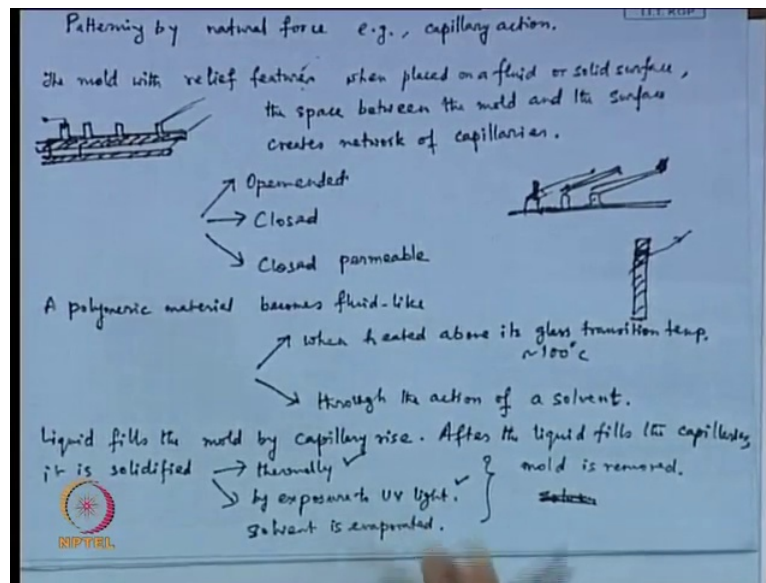 I.I.T. KGP
Patterning by natural force e.g., capillary action.
The mold with relief features when placed on a fluid or solid surface,
the space between the mold and the surface
creates network of capillaries.
Openended
Closed
Closed permeable
A polymeric material becomes fluid-like
when heated above its glass transition temp.
~100°c
through the action of a solvent.
Liquid fills the mold by capillary rise. After the liquid fills the capillaries,
it is solidified → thermally ✓ mold is removed.
by exposure to UV light. ✓
Solvent is evaporated.
NPTEL